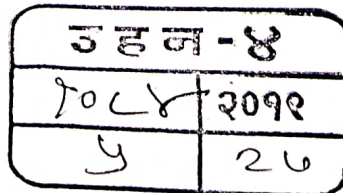 उहन-४
१०८४ २०१९
५ २७